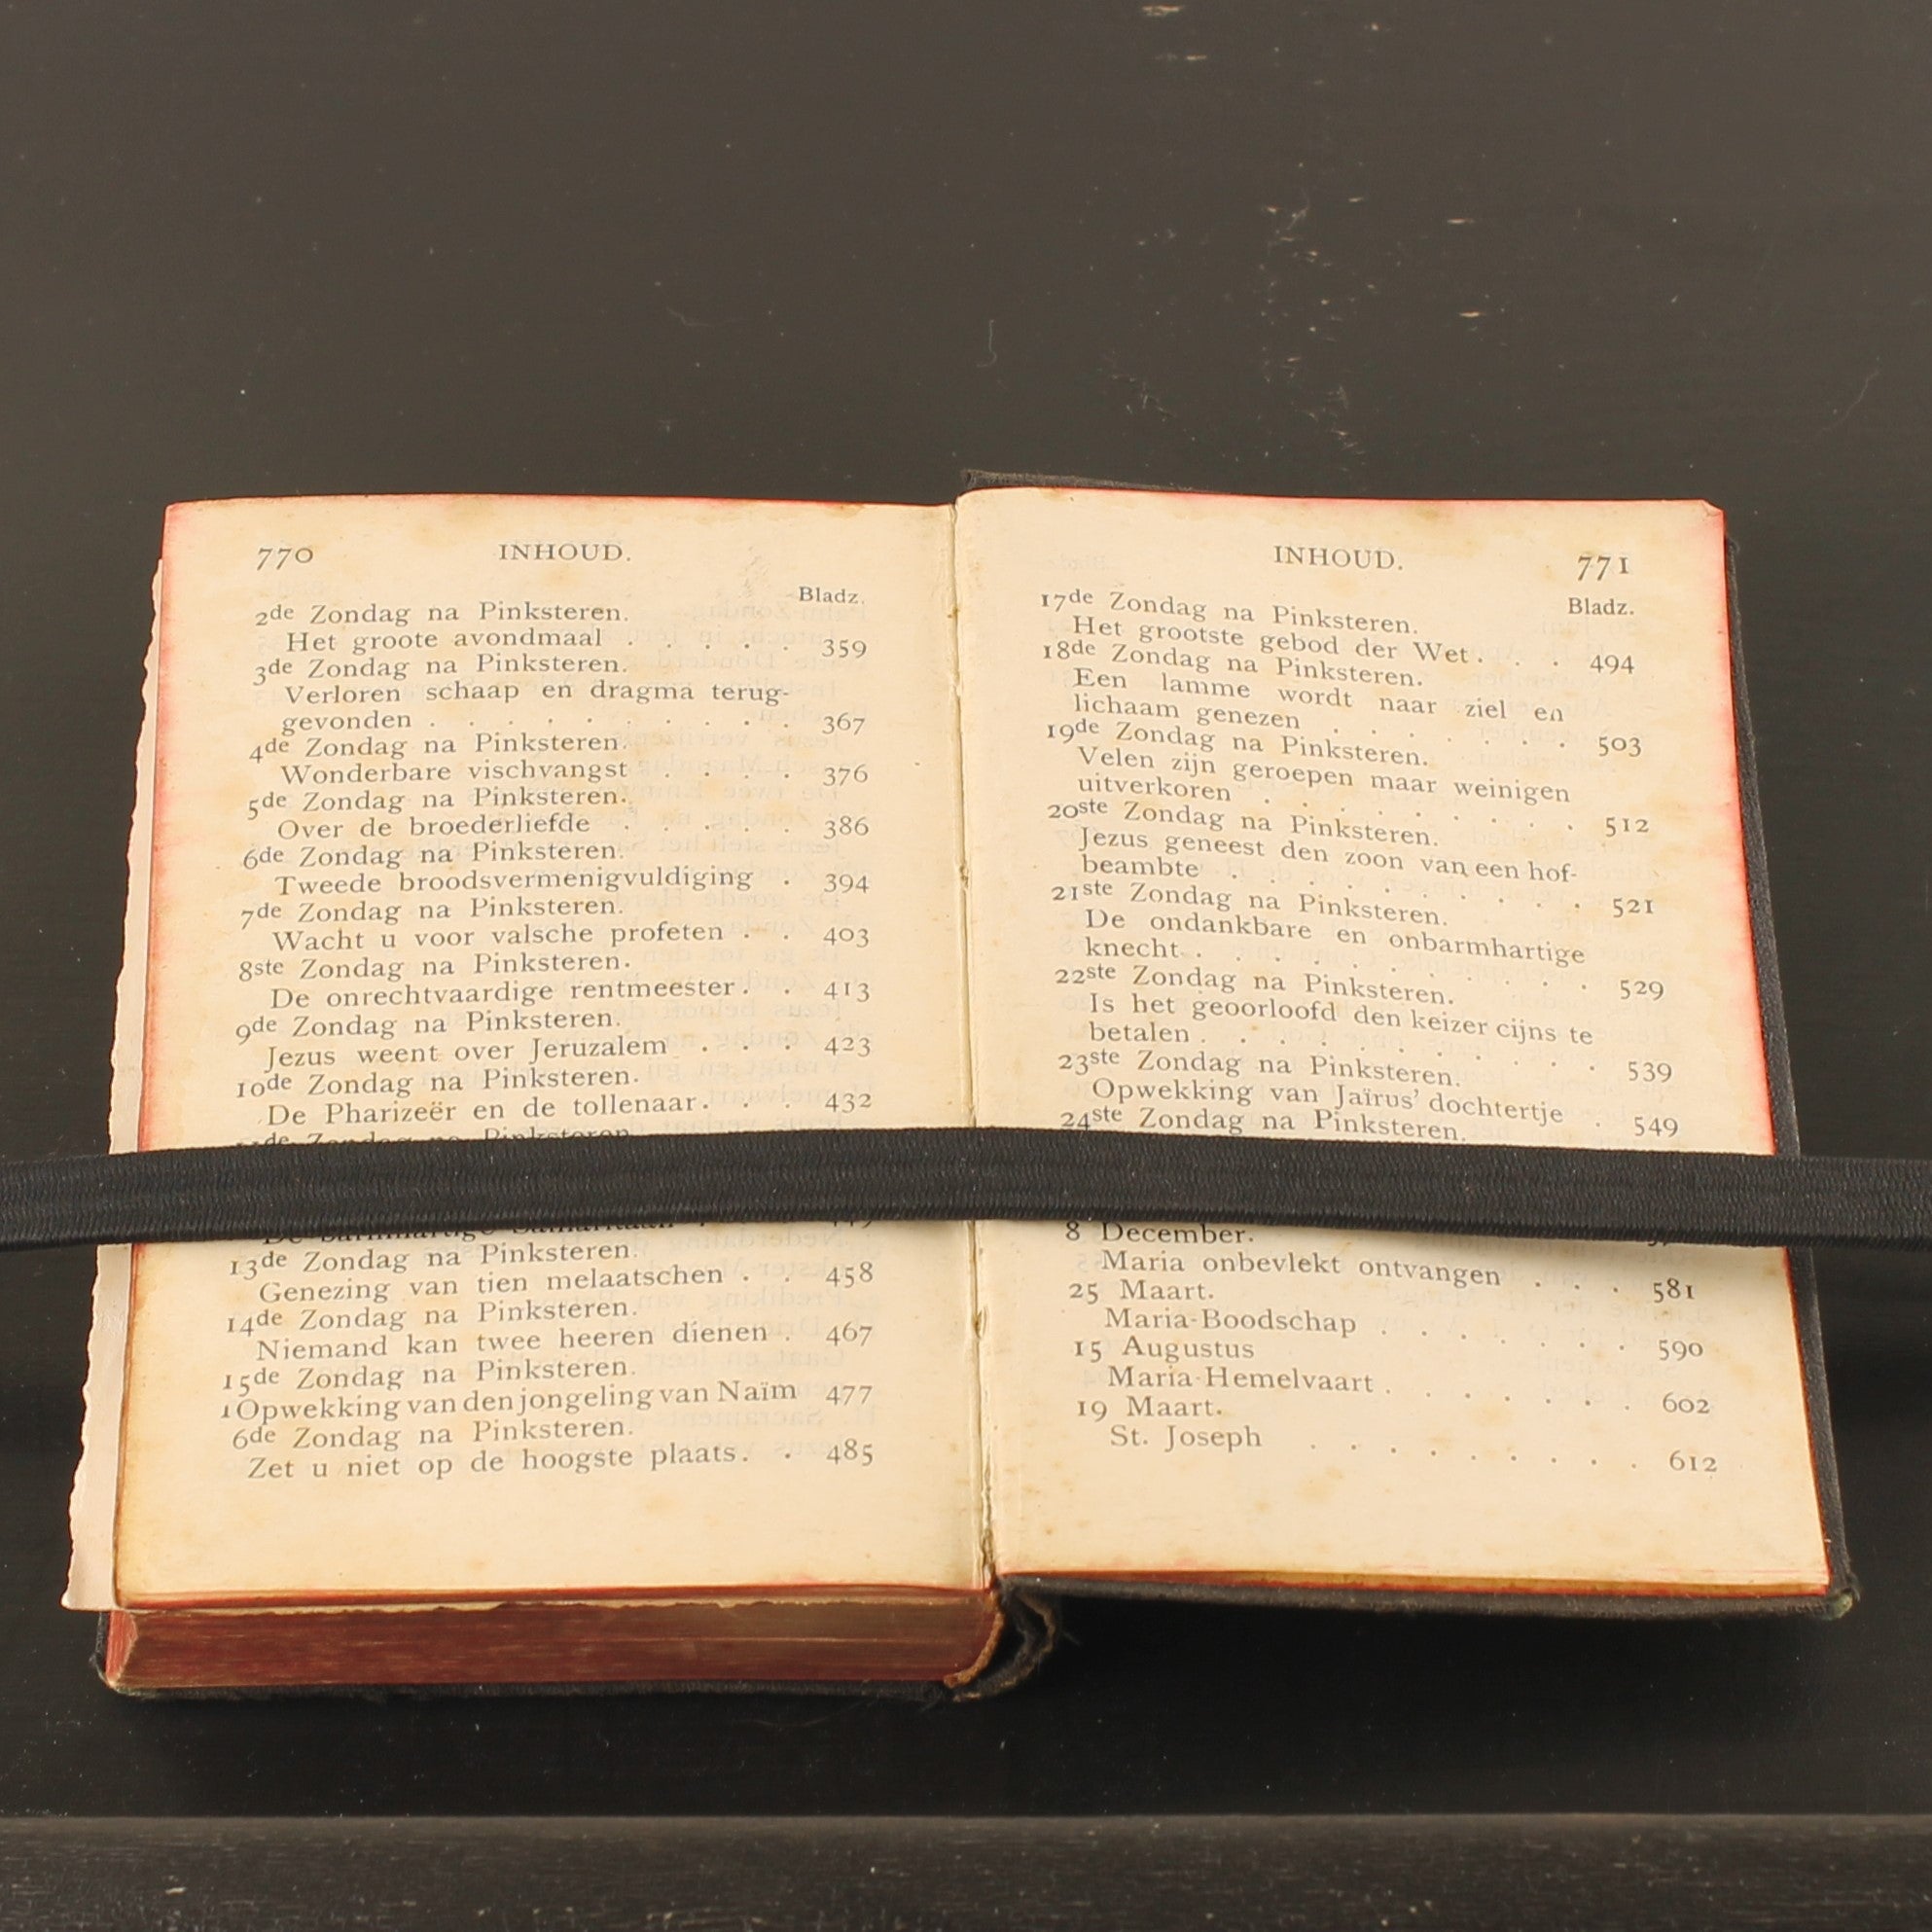 770 INHOUD.
Bladz.
2de Zondag na Pinksteren.
Het groote avondmaal . . . . . 359
3de Zondag na Pinksteren.
Verloren schaap en dragma terug-
gevonden . . . . . . . . . . 367
4de Zondag na Pinksteren.
Wonderbare vischvangst . . . . 376
5de Zondag na Pinksteren.
Over de broederliefde . . . . . 386
6de Zondag na Pinksteren.
Tweede broodsvermenigvuldiging . 394
7de Zondag na Pinksteren.
Wacht u voor valsche profeten . . 403
8ste Zondag na Pinksteren.
De onrechtvaardige rentmeester . . 413
9de Zondag na Pinksteren.
Jezus weent over Jeruzalem . . . 423
10de Zondag na Pinksteren.
De Pharizeër en de tollenaar . . . 432
Zondag na Pinksteren
De barmhartige Samaritaan
13de Zondag na Pinksteren.
Genezing van tien melaatschen . . 458
14de Zondag na Pinksteren.
Niemand kan twee heeren dienen . 467
15de Zondag na Pinksteren.
1Opwekking van den jongeling van Naïm 477
6de Zondag na Pinksteren.
Zet u niet op de hoogste plaats . . 485
INHOUD. 771
Bladz.
17de Zondag na Pinksteren.
Het grootste gebod der Wet . . . 494
18de Zondag na Pinksteren.
Een lamme wordt naar ziel en
lichaam genezen . . . . . . . 503
19de Zondag na Pinksteren.
Velen zijn geroepen maar weinigen
uitverkoren . . . . . . . . . 512
20ste Zondag na Pinksteren.
Jezus geneest den zoon van een hof-
beambte . . . . . . . . . . 521
21ste Zondag na Pinksteren.
De ondankbare en onbarmhartige
knecht . . . . . . . . . . . 529
22ste Zondag na Pinksteren.
Is het geoorloofd den keizer cijns te
betalen . . . . . . . . . . . 539
23ste Zondag na Pinksteren.
Opwekking van Jaïrus' dochtertje . 549
24ste Zondag na Pinksteren.
8 December.
Maria onbevlekt ontvangen . . . 581
25 Maart.
Maria-Boodschap . . . . . . . 590
15 Augustus
Maria-Hemelvaart . . . . . . . 602
19 Maart.
St. Joseph . . . . . . . . . 612